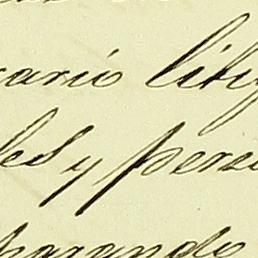 rario lity
les y perso
parando